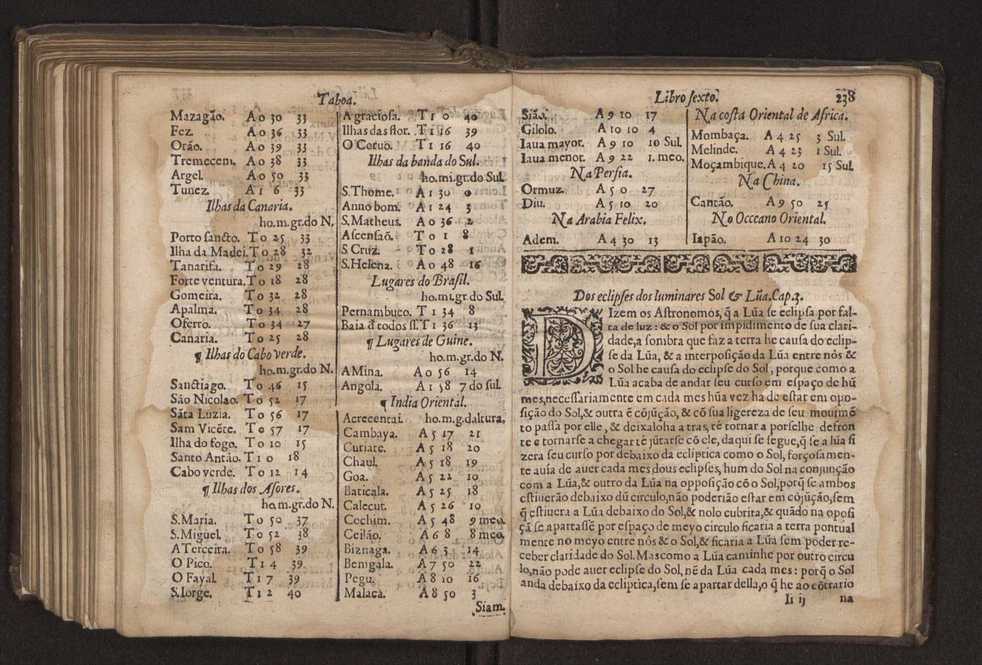 Taboa.
Mazagão. A 0 30 33
Fez. A 0 36 33
Orão. A 0 39 33
Tremecem. A 0 38 33
Argel. A 0 50 33
Tunez. A 1 6 33
Ilhas da Canaria.
ho.m.gr.do N.
Porto sancto. T 0 25 33
Ilha da Madei. T 0 28 32
Tanarifa. T 0 29 28
Forte ventura. T 0 18 28
Gomeira. T 0 32 28
Apalma. T 0 34 28
Oferro. T 0 34 27
Canaria. T 0 25 28
¶ Ilhas do Cabo verde.
ho.m.gr.do N.
Sanctiago. T 0 46 15
São Nicolao. T 0 52 17
Sāta Luzia. T 0 56 17
Sam Vicēte. T 0 57 17
Ilha do fogo. T 0 10 15
Santo Antão. T 1 0 18
Cabo verde. T 0 12 14
¶ Ilhas dos Asores.
ho.m.gr.do N.
S.Maria. T 0 50 37
S.Miguel. T 0 52 38
A Terceira. T 0 58 39
O Pico. T 1 4 39.
O Fayal. T 1 7 39
S.Iorge. T 1 2 40
A graciosa. T 1 0 40
Ilhas das flor. T 1 16 39
O Coruo. T 1 16 40
Ilhas da banda do Sul.
ho.mi.gr.do Sul
S.Thome. A 1 30 0
Anno bom. A 1 24 3
S.Matheus. A 0 36 2
Ascensaõ. T 0 1 8
S Cruz. T 0 28 1
S.Helena. A 0 48 16
Lugares do Brasil.
ho.mi.gr do Sul.
Pernambuco. T 1 34 8
Baia d todos ss. T 1 36 13
¶ Lugares de Guine.
ho.m.gr.do N.
A Mina. A 0 56 14
Angola. A 1 58 7 do sul.
¶ India Oriental.
Acrecentai. ho.m.g.daltura.
Cambaya. A 5 17 21
Curiate. A 5 18 20
Chaul. A 5 18 19
Goa. A 5 22 10
Baticala. A 5 25 18
Calecut. A 5 26 10
Cochim. A 5 48 9 meo.
Ceilão. A 6 8 8 meo.
Biznaga. A 6 3 14
Bemgala. A 7 50 22
Pegu. A 8 10 16
Malaca. A 8 50 3
Siam.
Libro sexto. 238
Sião. A 9 10 17
Gilolo. A 10 10 4
Iaua mayor. A 9 10 10 Sul.
Iaua menor. A 9 22 1. meo.
Na Persia.
Ormuz. A 5 0 27
Diu. A 5 10 20
Na Arabia Felix.
Adem. A 4 30 13
Na costa Oriental de Africa.
Mombaça. A 4 25 3 Sul.
Melinde. A 4 23 1 Sul.
Moçambique. A 4 20 15 Sul.
Na China.
Cantão. A 9 50 25
No Occeano Oriental.
Iapão. A 10 24 30
Dos eclipses dos luminares Sol & Lũa. Cap.3.
DIzem os Astronomos, q̃ a Lũa se eclipsa por fal-
ta de luz: & o Sol por impidimento de sua clari-
dade, a sombra que faz a terra he causa do eclip-
se da Lũa, & a interposição da Lũa entre nós &
o Sol he causa do eclipse do Sol, porque como a
Lũa acaba de andar seu curso em espaço de hũ
mes, necessariamente em cada mes hũa vez ha de estar em opo-
sição do Sol, & outra ē cõjũção, & cõ sua ligereza de seu mouimē
to passa por elle, & deixaloha a tras, tē tornar a porselhe defron
te e tornarse a chegar tē jũtarse cõ ele, daqui se segue, q̃ se a lũa si
zera seu curso por debaixo da ecliptica como o Sol, forçosamen-
te ausa de auer cada mes dous eclipses, hum do Sol na conjunção
com a Lũa, & outro da Lũa na opposição cõ o Sol, porq̃ se ambos
estiuerão debaixo dũ circulo, não poderião estar em cõjũção, sem
q̃ estiuera a Lũa debaixo do Sol, & nolo cubrira, & quãdo na oposi
çã se apartassē por espaço de meyo circulo ficaria a terra pontual
mente no meyo entre nós & o Sol, & ficaria a Lũa sem poder re-
ceber claridade do Sol. Mas como a Lũa caminhe por outro circu
lo, não pode auer eclipse do Sol, nē da Lũa cada mes: porq̃ o Sol
anda debaixo da ecliptica, sem se apartar della, o q̃ he ao cõtrario
Ii ij na